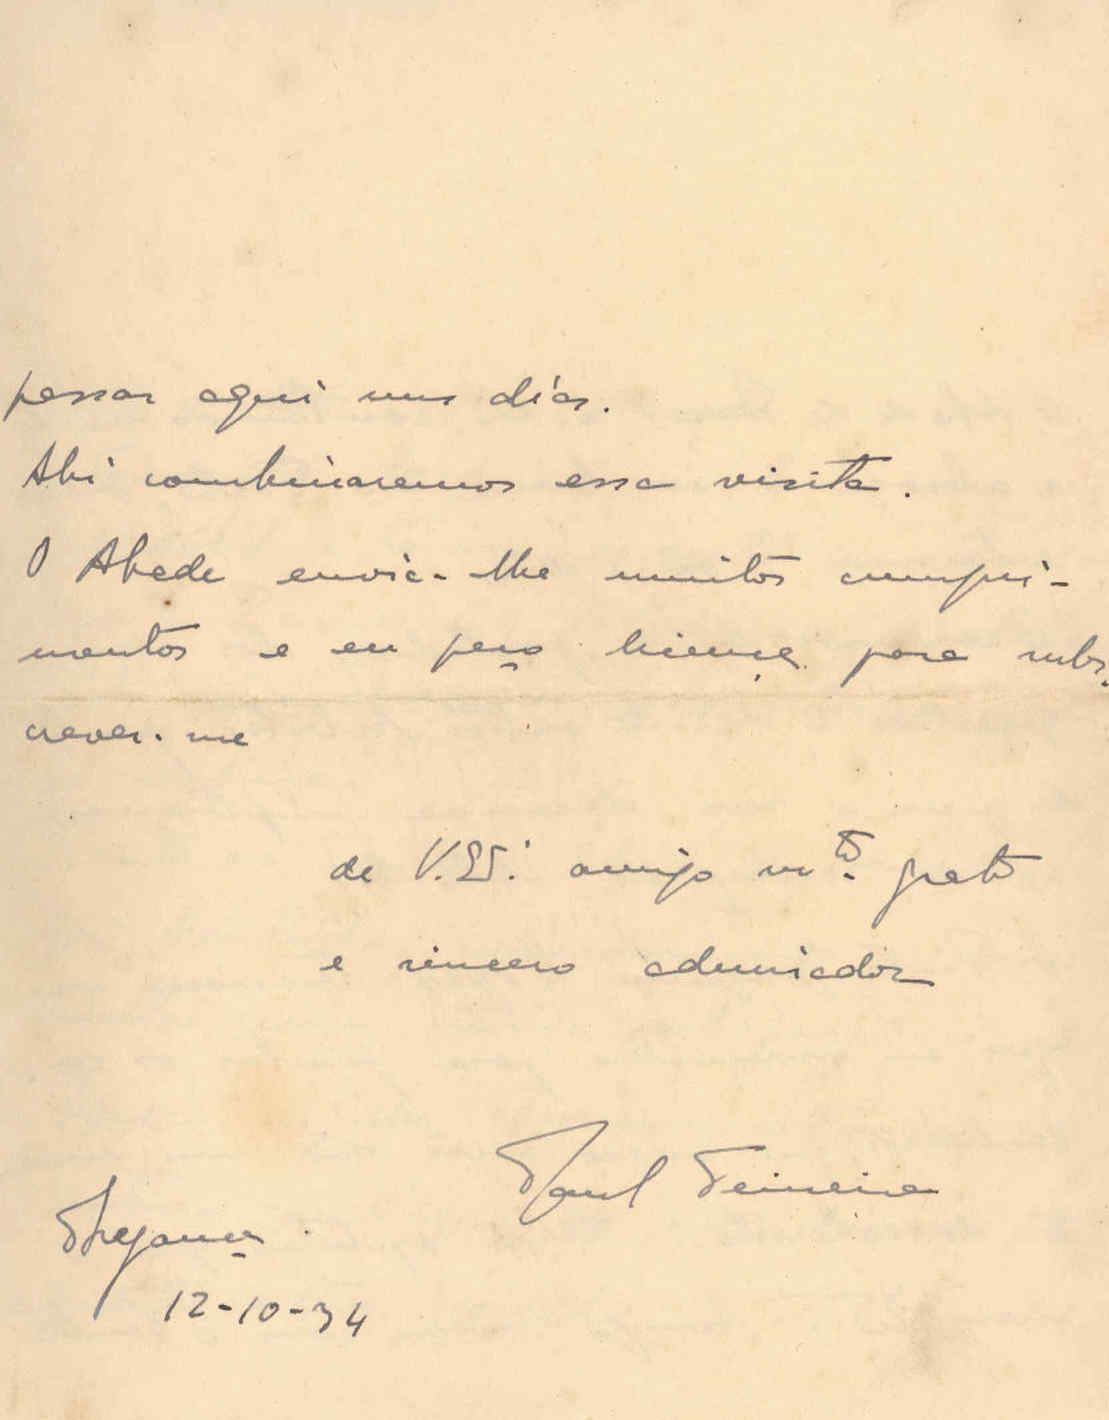 passar aqui uns dias.
Ahi combinaremos essa visita.
O Abade envia-lhe muitos cumpri-
mentos e eu peço licença para subs-
crever-me
de V. Exª. amigo mtº. grato
e sincero admirador
Raul Teixeira
Bragança.
12-10-34